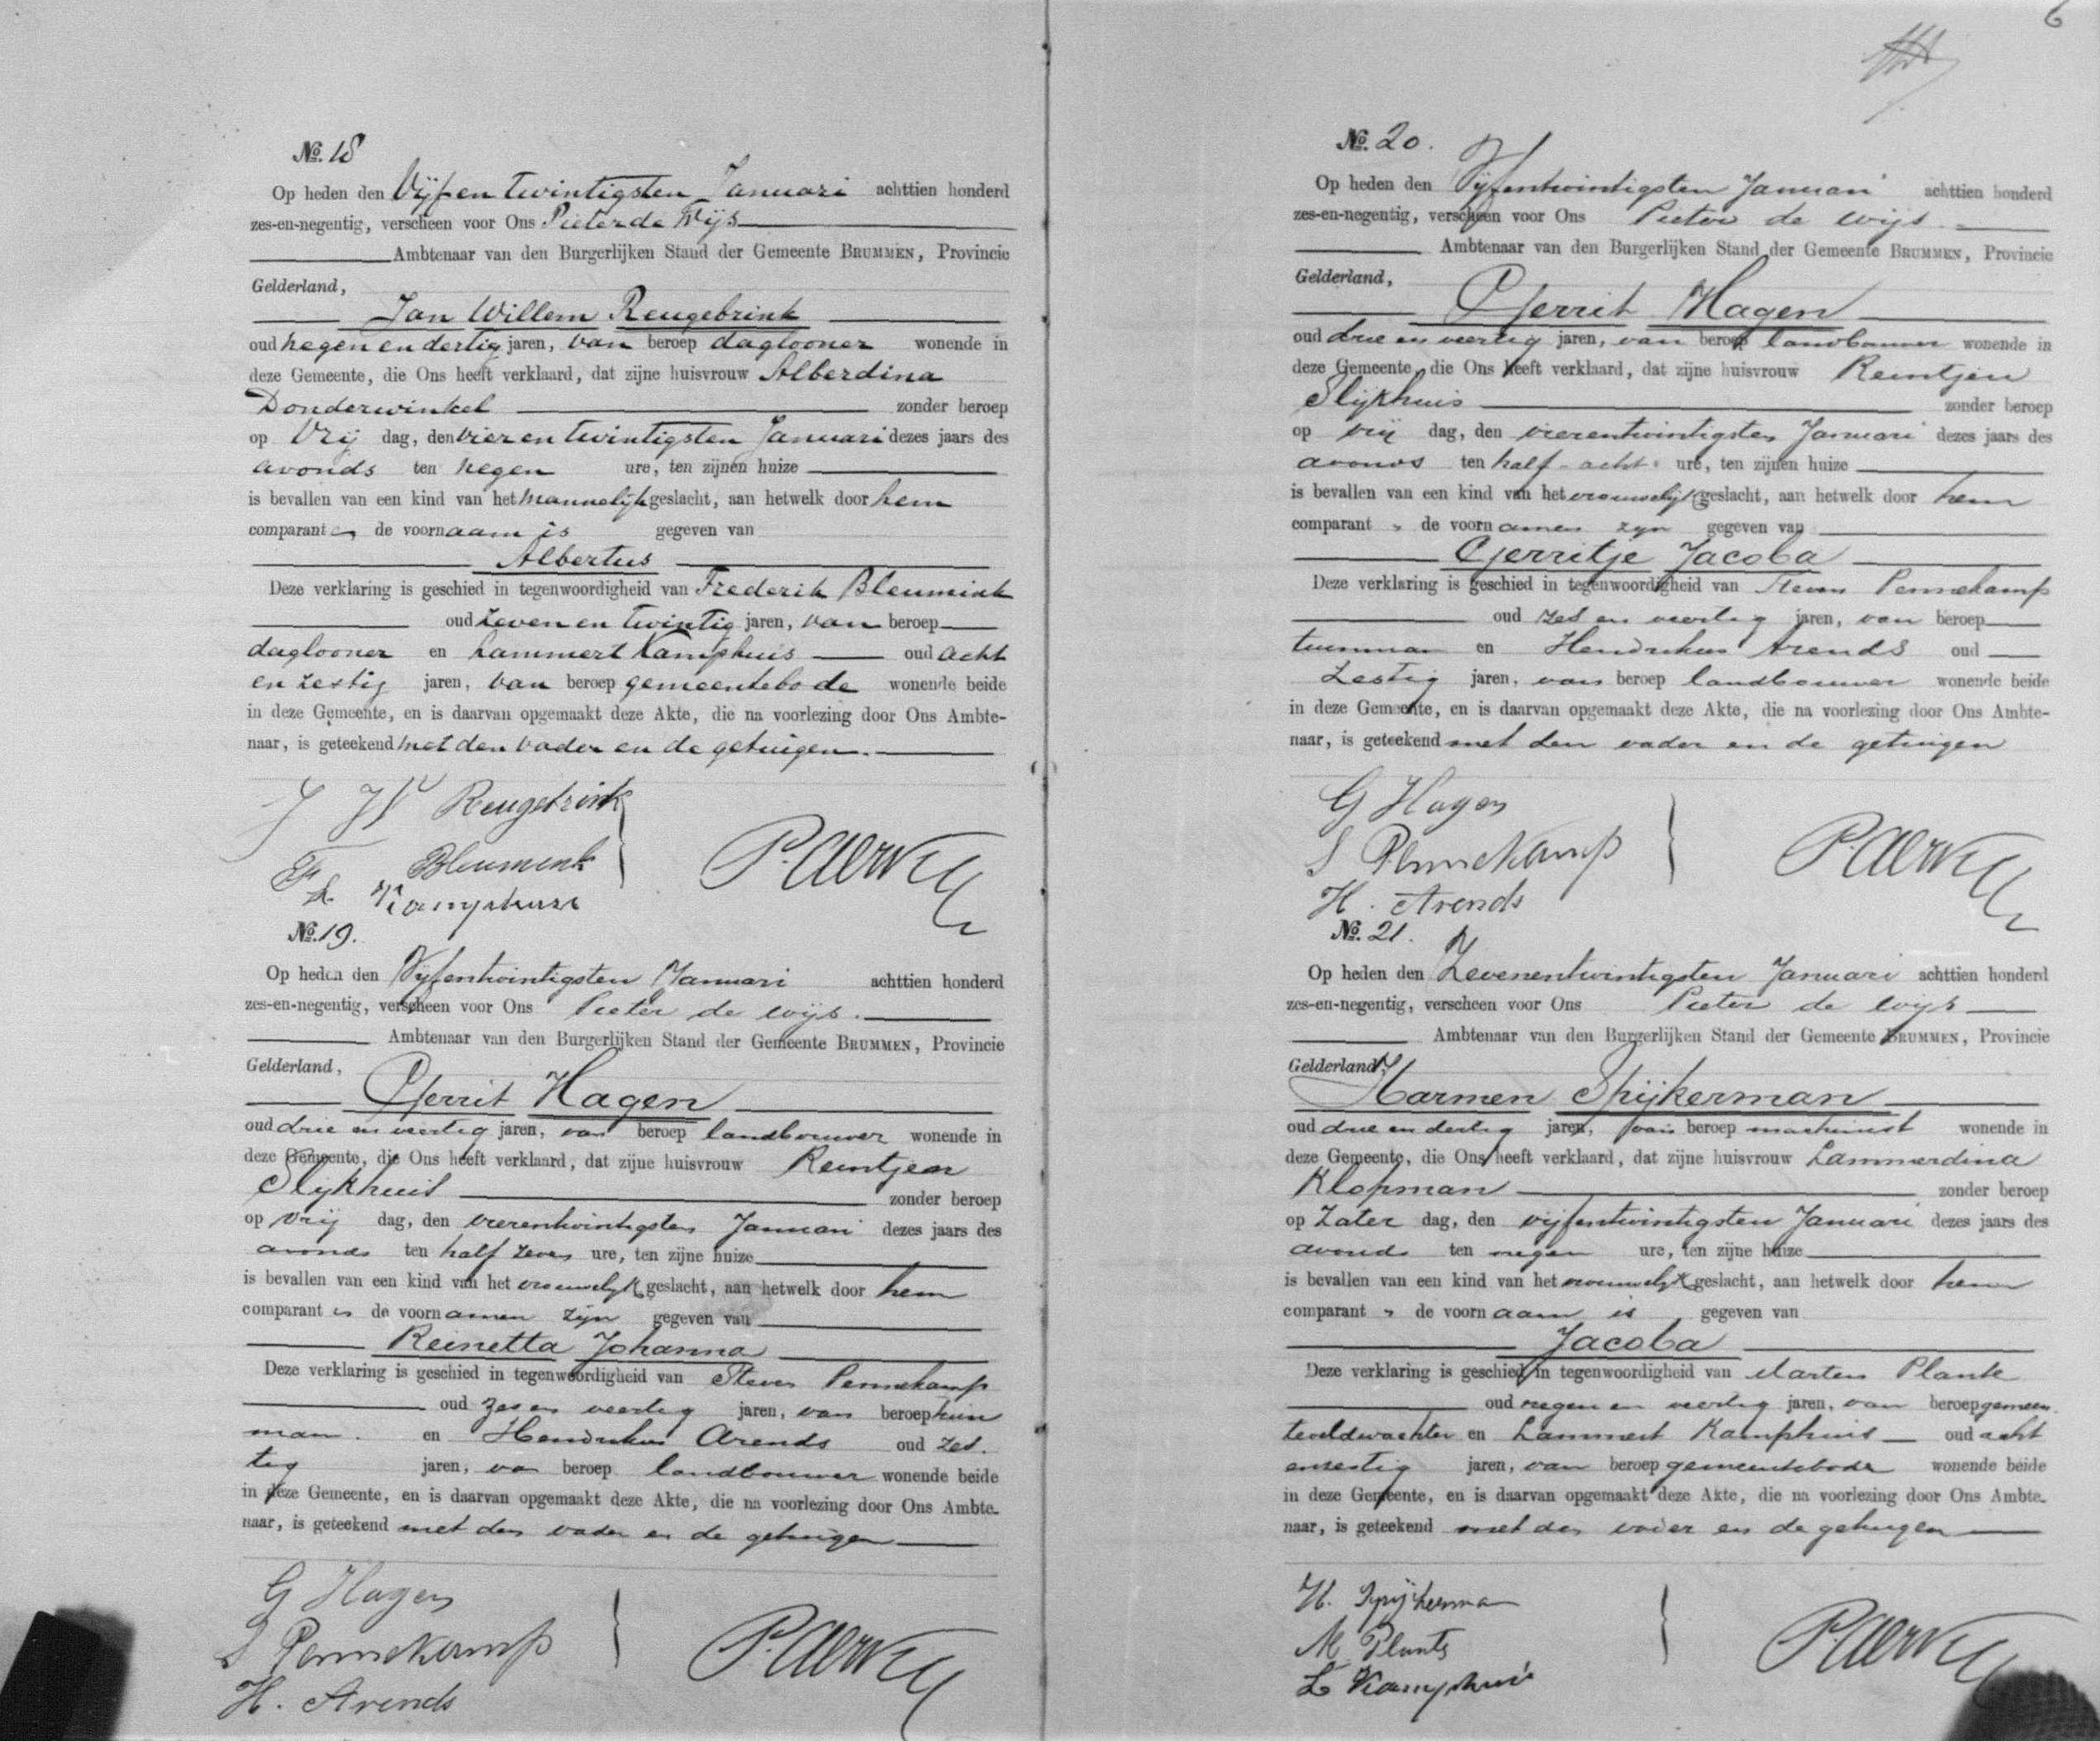 No. 18
Op heden den Vijf en twintigsten Januari achttien honderd
zes-en-negentig, verscheen voor Ons Pieter de Wijs
Ambtenaar van den Burgerlijken Stand der Gemeente BRUMMEN, Provincie
Gelderland,
Jan Willem Reugebrink
oud negen en dertig jaren, van beroep daglooner wonende in
deze Gemeente, die Ons heeft verklaard, dat zijne huisvrouw Alberdina
Donderwinkel zonder beroep
op Vrij dag, den vier en twintigsten Januari dezes jaars des
avonds ten negen ure, ten zijnen huize
is bevallen van een kind van het mannelijk geslacht, aan hetwelk door hem
comparant de voornaam is gegeven van
Albertus
Deze verklaring is geschied in tegenwoordigheid van Frederik Bleumink
oud zeven en twintig jaren, van beroep
daglooner en Lammert Kamphuis oud acht
en zestig jaren, van beroep gemeentebode wonende beide
in deze Gemeente, en is daarvan opgemaakt deze Akte, die na voorlezing door Ons Ambte-
naar, is geteekend met den vader en de getuigen.
J W Reugebrink
F Bleumink
L Kamphuis
No. 19.
Op heden den Vijfentwintigsten Januari achttien honderd
zes-en-negentig, verscheen voor Ons Pieter de Wijs.
Ambtenaar van den Burgerlijken Stand der Gemeente BRUMMEN, Provincie
Gelderland,
Gerrit Hagen
oud drie en veertig jaren, van beroep landbouwer wonende in
deze Gemeente, die Ons heeft verklaard, dat zijne huisvrouw Reintjen
Slijkhuis zonder beroep
op vrij dag, den vierentwintigsten Januari dezes jaars des
avonds ten half zeven ure, ten zijne huize
is bevallen van een kind van het vrouwelijk geslacht, aan hetwelk door hem
comparant de voornamen zijn gegeven van
Reinetta Johanna
Deze verklaring is geschied in tegenwoordigheid van Steven Pennekamp
oud zes en veertig jaren, van beroep tuin
man. en Hendrikus Arends oud zes-
tig jaren, van beroep landbouwer wonende beide
in deze Gemeente, en is daarvan opgemaakt deze Akte, die na voorlezing door Ons Ambte-
naar, is geteekend met den vader en de getuigen
G Hagen
S Pennekamp
H. Arends
6
No. 20.
Op heden den Vijfentwintigsten Januari achttien honderd
zes-en-negentig, verscheen voor Ons Pieter de Wijs.
Ambtenaar van den Burgerlijken Stand der Gemeente BRUMMEN, Provincie
Gelderland,
Gerrit Hagen
oud drie en veertig jaren, van beroep landbouwer wonende in
deze Gemeente, die Ons heeft verklaard, dat zijne huisvrouw Reintjen
Slijkhuis zonder beroep
op vrij dag, den vierentwintigsten Januari dezes jaars des
avonds ten half-acht ure, ten zijnen huize
is bevallen van een kind van het vrouwelijk geslacht, aan hetwelk door hem
comparant de voornamen zyn gegeven van
Gerritje Jacoba
Deze verklaring is geschied in tegenwoordigheid van Steven Pennekamp
oud zes en veertig jaren, van beroep
tuinman en Hendrikus Arends oud
zestig jaren, van beroep landbouwer wonende beide
in deze Gemeente, en is daarvan opgemaakt deze Akte, die na voorlezing door Ons Ambte-
naar, is geteekend met den vader en de getuigen
G Hagen
S Pennekamp
H. Arends
No. 21.
Op heden den Zevenentwintigsten Januari achttien honderd
zes-en-negentig, verscheen voor Ons Pieter de Wijs
Ambtenaar van den Burgerlijken Stand der Gemeente BRUMMEN, Provincie
Gelderland,
Harmen Spijkerman
oud drie en dertig jaren, van beroep machinist wonende in
deze Gemeente, die Ons heeft verklaard, dat zijne huisvrouw Lammerdina
Klopman zonder beroep
op Zater dag, den vijfentwintigsten Januari dezes jaars des
avonds ten negen ure, ten zijne huize
is bevallen van een kind van het vrouwelijk geslacht, aan hetwelk door hem
comparant de voornaam is gegeven van
Jacoba
Deze verklaring is geschied in tegenwoordigheid van Marten Plante
oud negen en veertig jaren, van beroep gemeen
teveldwachter en Lammert Kamphuis oud acht
enzestig jaren, van beroep gemeentebode wonende beide
in deze Gemeente, en is daarvan opgemaakt deze Akte, die na voorlezing door Ons Ambte-
naar, is geteekend met den vader en de getuigen
H. Spijkerman
M Plante
L Kamphuis